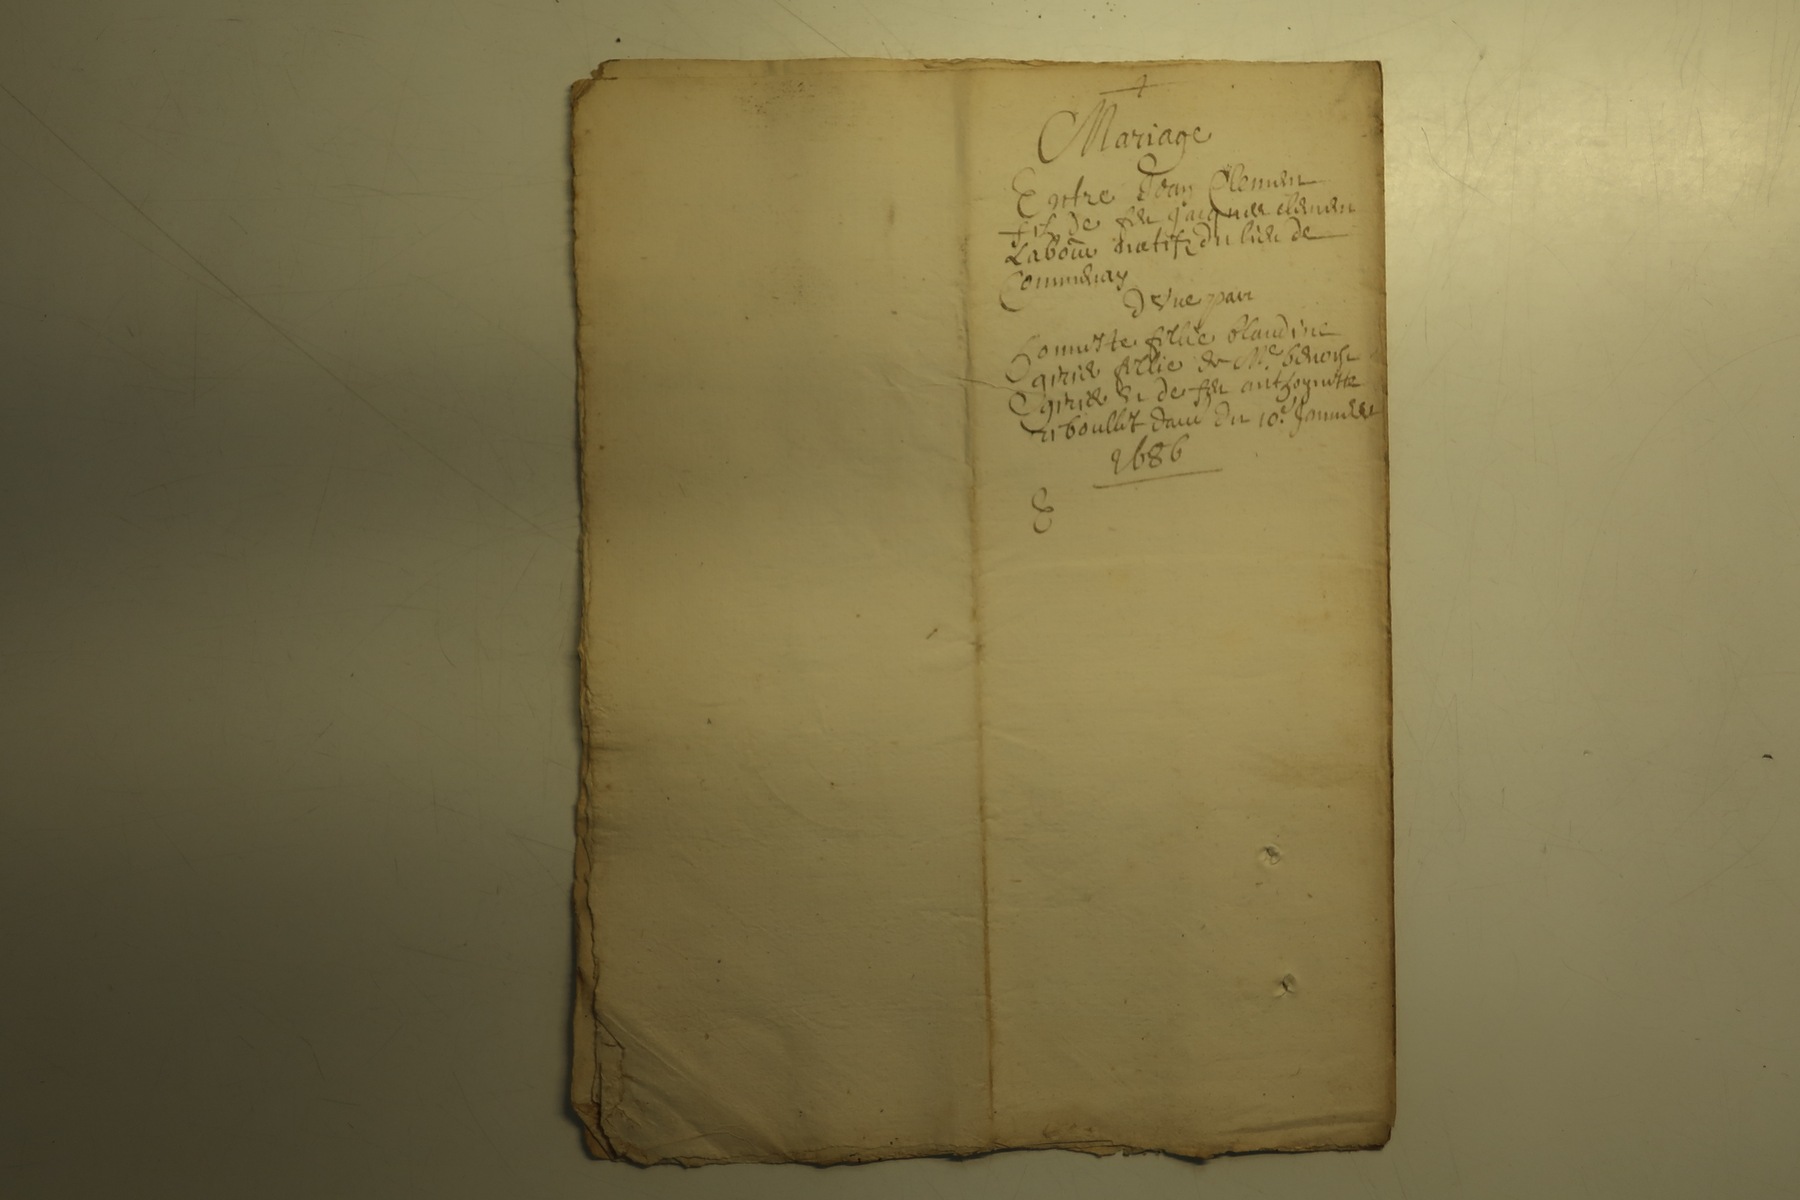 Mariage
Entre Jean Clemen
fils de feu Jacques clemen
Labour natif du lieu de
Communay
d'Vne part
honneste fillie blandine
Girie fillie de Me benoist
Girie Et de feu anthoynette
reboullet du 10e Janvier
1686